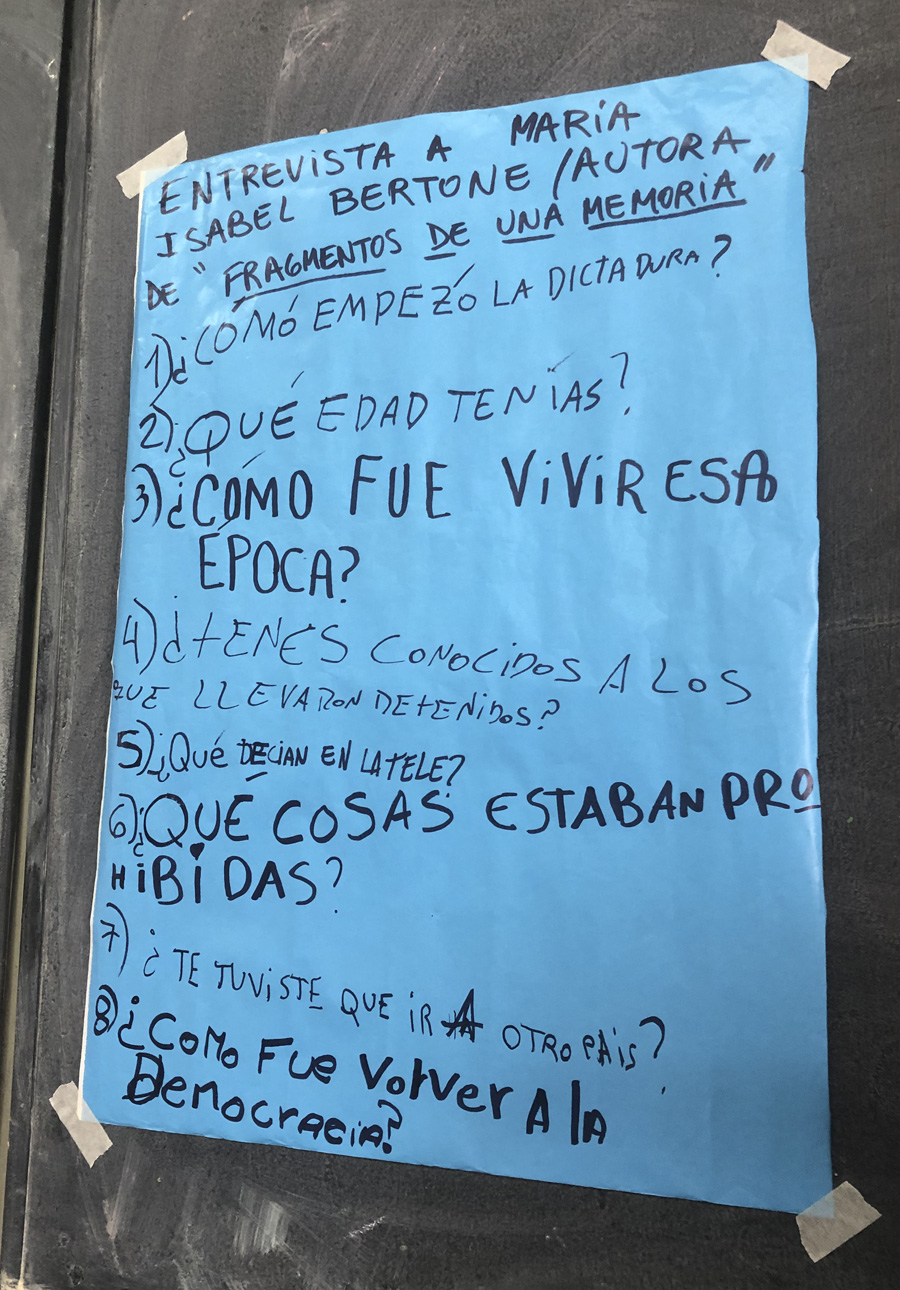 ENTREVISTA A MARÍA
ISABEL BERTONE / AUTORA
DE "FRAGMENTOS DE UNA MEMORIA"
1) ¿CÓMÓ EMPEZÓ LA DICTADURA?
2) ¿QUÉ EDAD TENÍAS?
3) ¿CÓMO FUE VIVIR ESA
ÉPOCA?
4) ¿TENES CONOCIDOS A LOS
QUE LLEVARON DETENIDOS?
5) ¿Qué DECIAN EN LA TELE?
6) ¿QUÉ COSAS ESTABAN PRO
HIBIDAS?
7) ¿TE TUVISTE QUE IR A OTRO PAIS?
8) ¿COMO FUE VOLVER A LA
DEMOCRACIA?